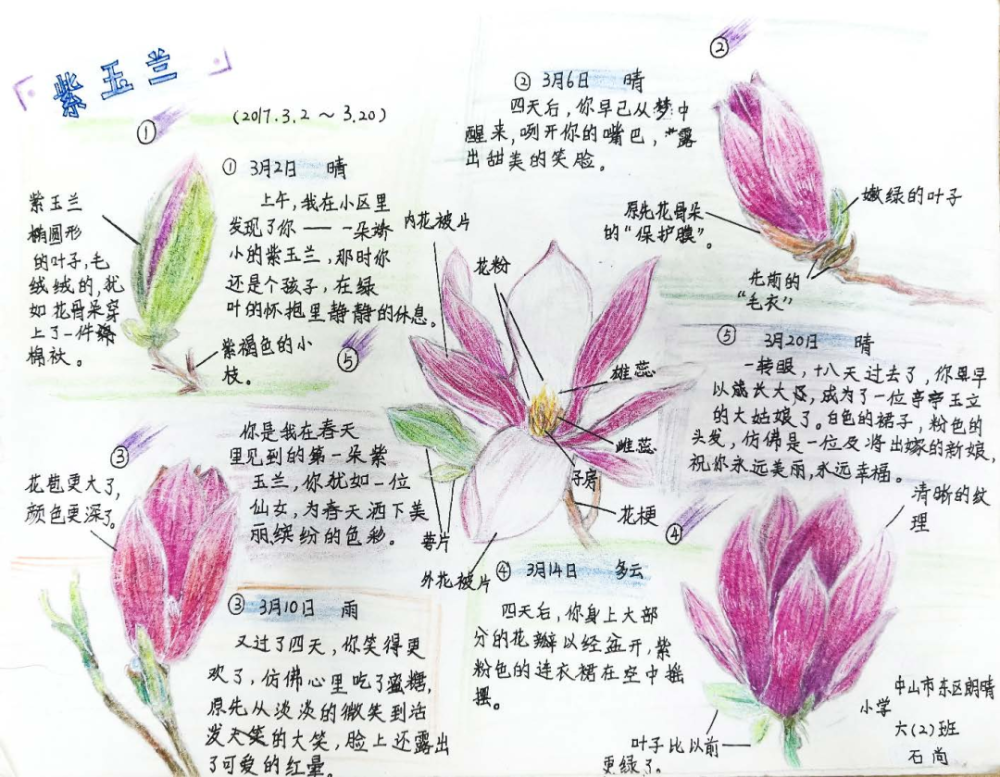 「紫玉兰」
(2017.3.2～3.20)
①
① 3月2日 晴
上午，我在小区里
发现了你——一朵娇
小的紫玉兰，那时你
还是个孩子，在绿
叶的怀抱里静静的休息。
紫玉兰
椭圆形
的叶子，毛
绒绒的，犹
如花骨朵穿
上了一件
棉袄。
紫褐色的小
枝。
②
② 3月6日 晴
四天后，你早已从梦中
醒来，咧开你的嘴巴，露
出甜美的笑脸。
嫩绿的叶子
原先花骨朵
的“保护膜”。
先前的
“毛衣”
③
花苞更大了，
颜色更深了。
③ 3月10日 雨
又过了四天，你笑得更
欢了，仿佛心里吃了蜜糖，
原先从淡淡的微笑到活
发大笑的大笑，脸上还露出
了可爱的红晕。
④
④ 3月14日 多云
四天后，你身上大部
分的花瓣以经盆开，紫
粉色的连衣裙在空中摇
摆。
清晰的纹
理
叶子比以前
更绿了。
⑤
内花被片
花粉
雄蕊
雌蕊
子房
花梗
萼片
外花被片
⑤ 3月20日 晴
一转眼，十八天过去了，你早早
以成长大，成为了一位亭亭玉立
的大姑娘了。白色的裙子，粉色的
头发，仿佛是一位及将出嫁的新娘，
祝你永远美丽，永远幸福。
你是我在春天
里见到的第一朵紫
玉兰，你犹如一位
仙女，为春天洒下美
丽缤纷的色彩。
中山市东区朗晴
小学
六(2)班
石尚